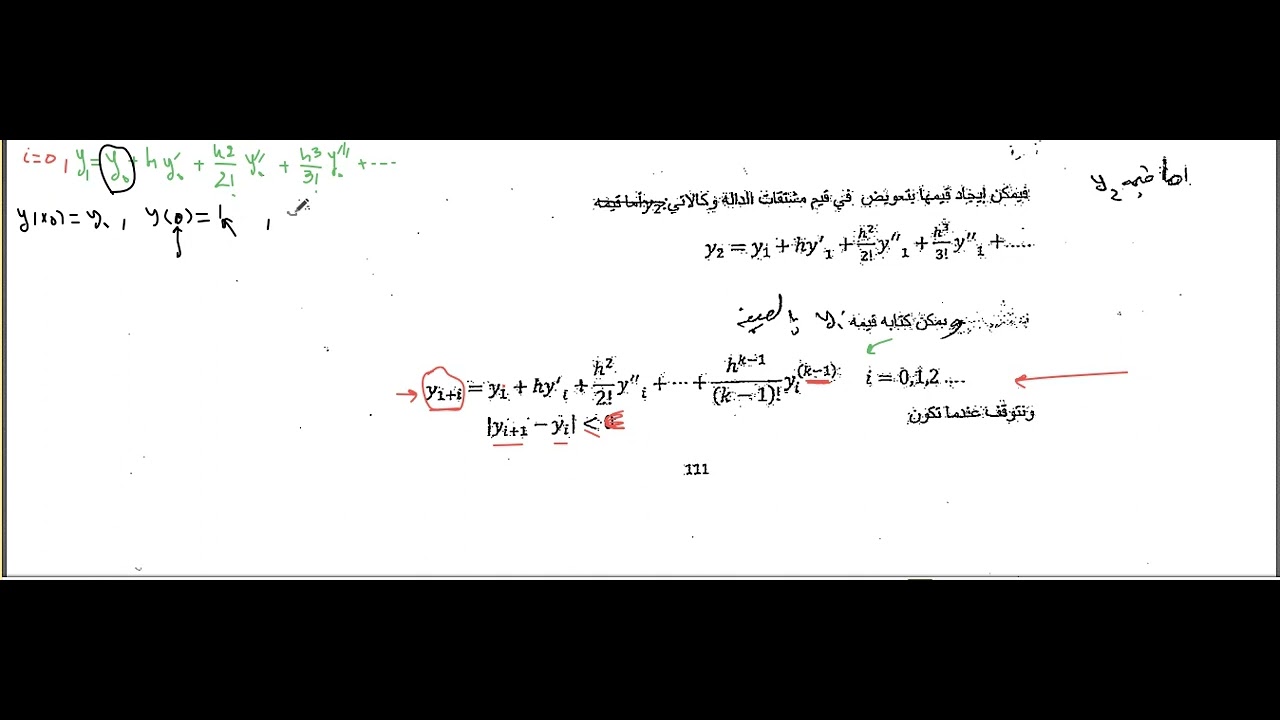 i=0, y₁=y₀+hy′₀ + h2/2! y″₀ + h³/3! y‴₀ + ....
y(x₀) = y₀, y(0) = 1,
اما قيمه y₂
فيمكن إيجاد قيمها بتعويض في قيم مشتقات الدالة وكالاتي: y₂ أما قيمه
y₂ = y₁ + hy′₁ + h²/2! y″₁ + h³/3! y″₁ + .....
ويمكن كتابه قيمه yᵢ بالصيغه
y₁₊ᵢ = y₁ + hy′ᵢ + h²/2! y″ᵢ + ⋯ + hᵏ⁻¹/(k − 1)! yᵢ⁽ᵏ⁻¹⁾ i = 0,1,2 ....
ونتوقف عندما تكون
|yᵢ₊₁ − yᵢ| ≤ ϵ
111